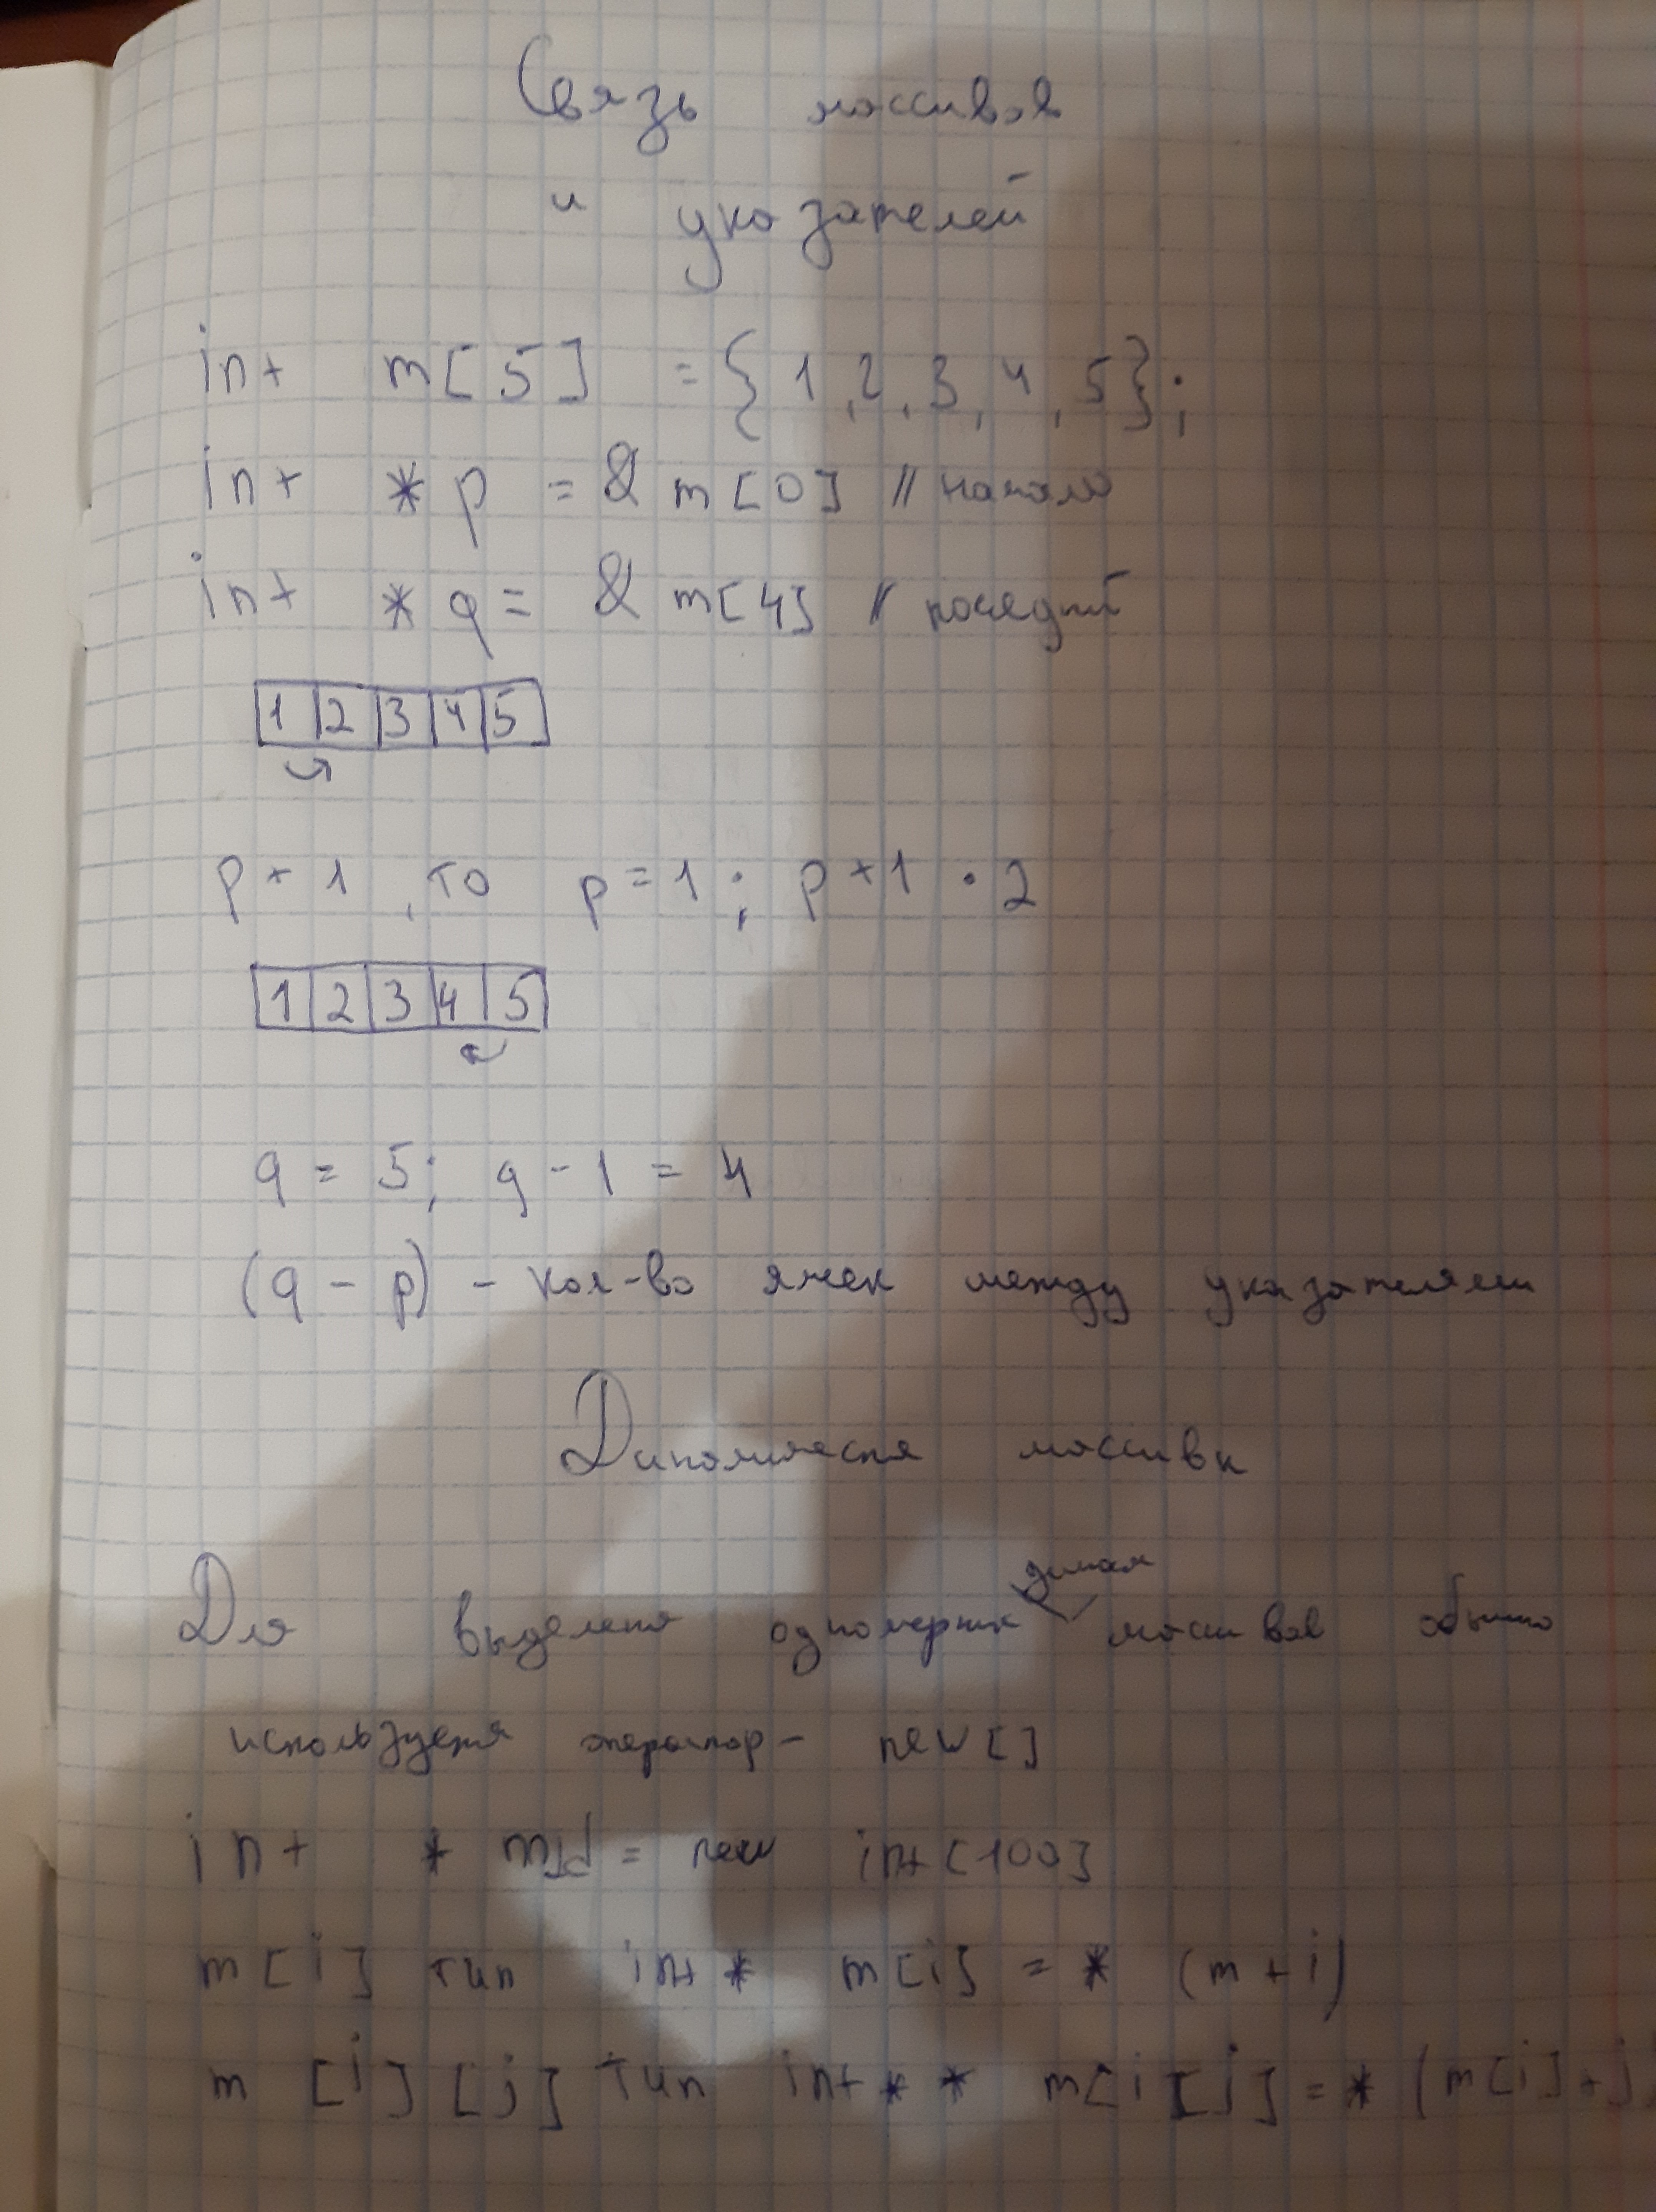 Связь массивов
и указателей
int m[5] = {1,2,3,4,5};
int *p = &m[0] // начало
int *q = &m[4] //
1 2 3 4 5
p + 1, то p = 1; p + 1 = 2
1 2 3 4 5
q = 5; q - 1 = 4
(q - p) - кол-во ячеек между указателями
Динамическия массивы
динам
Для выделения одномерных массивов обычно
используется оператор - new[]
int * = new int[100]
m[i] тип int * m[i] = * (m + i)
m [i] [j] тип int * * m[i][j] = * (m[i]+j)